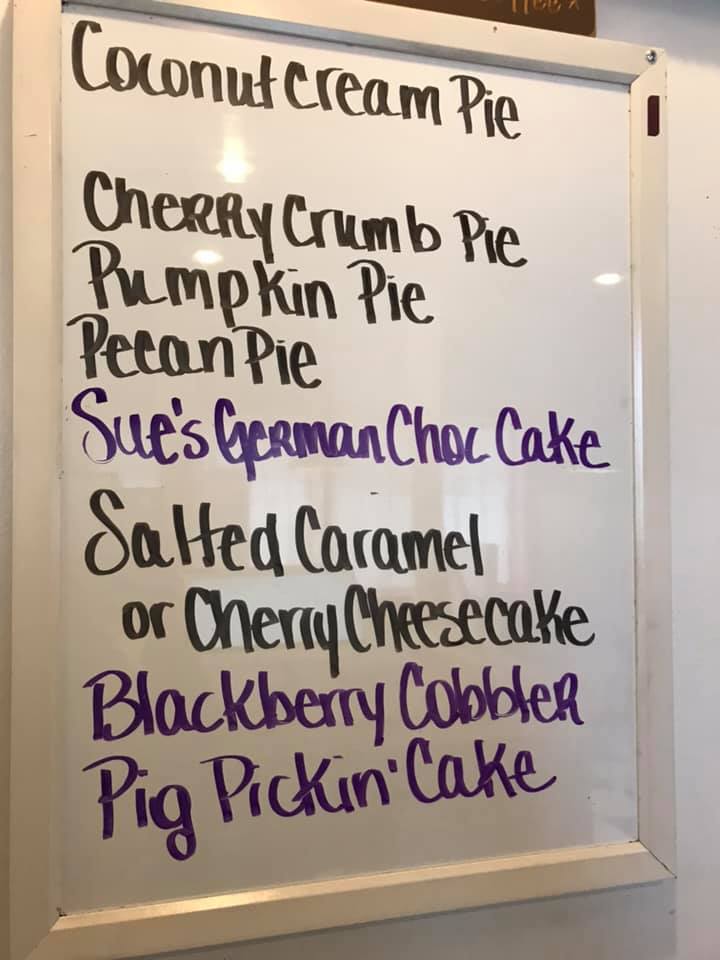 Coconut Cream Pie
Cherry Crumb Pie
Pumpkin Pie
Pecan Pie
Sue's German Choc Cake
Salted Caramel
or Cherry Cheesecake
Blackberry Cobbler
Pig Pickin' Cake